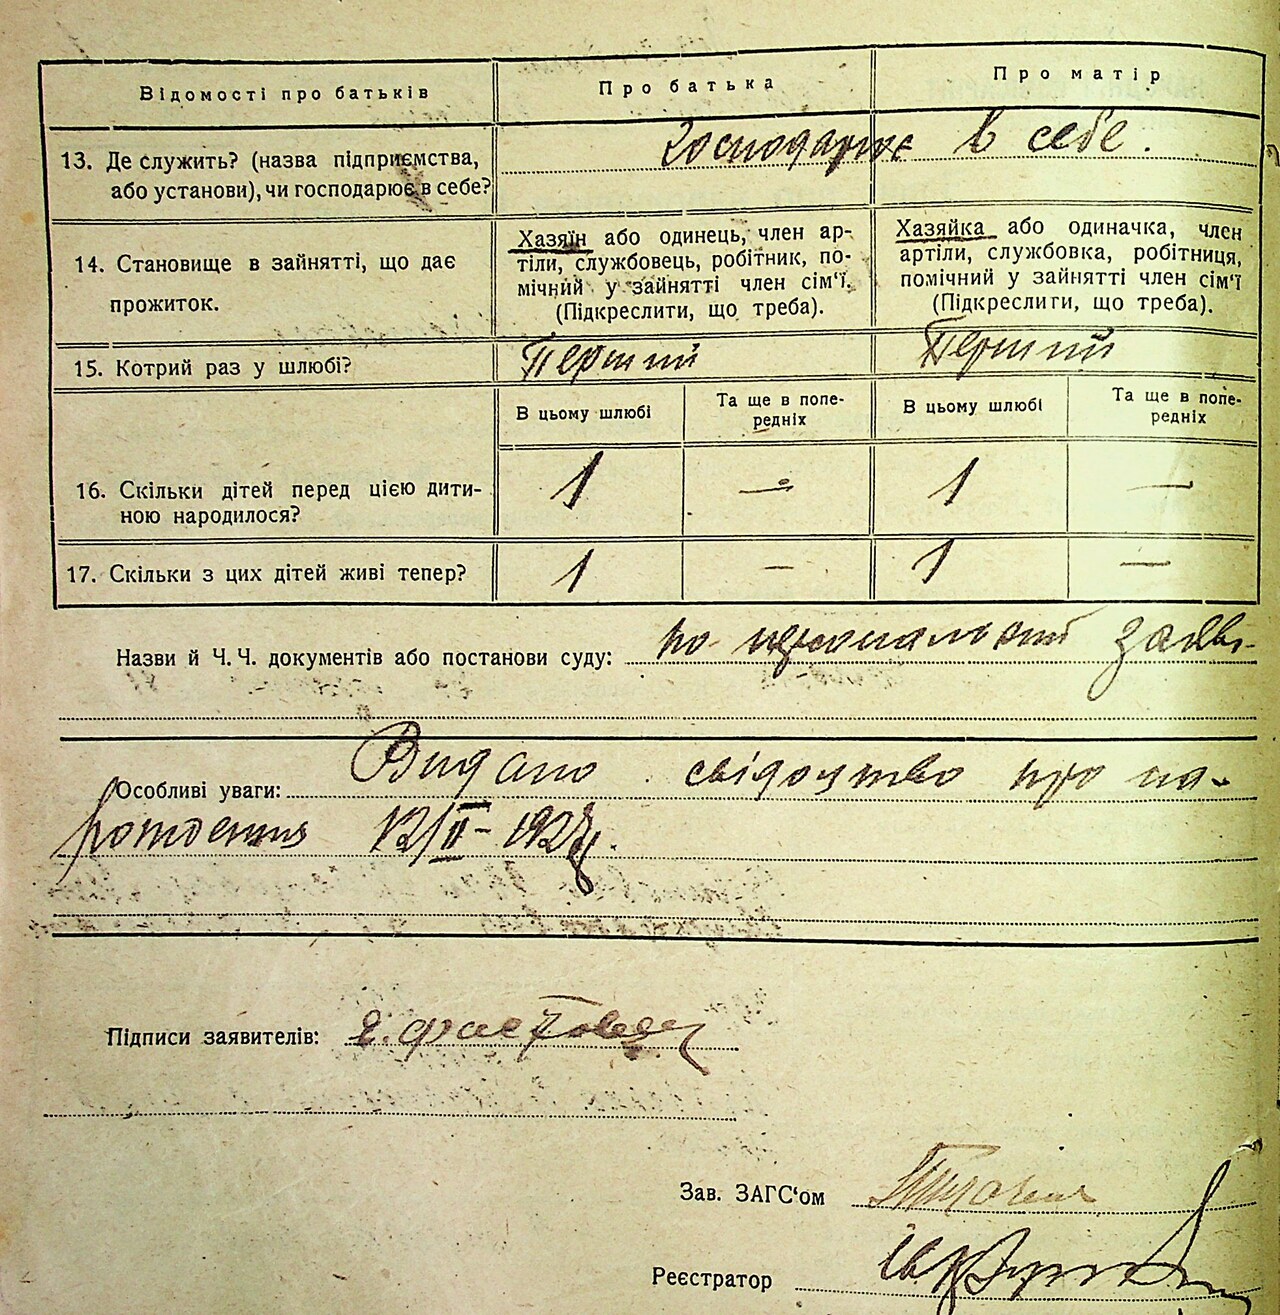 Відомості про батьків
Про батька
Про матір
13. Де служить? (назва підприємства,
або установи), чи господарює в себе?
Господарює в себе.
14. Становище в зайнятті, що дає
прожиток.
Хазяїн або одинець, член ар-
тіли, службовець, робітник, по-
мічний у зайнятті член сім'ї.
(Підкреслити, що треба).
Хазяйка або одиначка, член
артіли, службовка, робітниця,
помічний у зайнятті член сім'ї
(Підкреслити, що треба).
15. Котрий раз у шлюбі?
Перший
Перший
В цьому шлюбі
Та ще в попе-
редніх
В цьому шлюбі
Та ще в попе-
редніх
16. Скільки дітей перед цією дити-
ною народилося?
1 — 1 —
17. Скільки з цих дітей живі тепер?
1 — 1 —
Назви й Ч. Ч. документів або постанови суду: по заяві
Особливі уваги: Видано свідоцтво про на-
рождення 12/II-1927р.
Підписи заявителів:
Зав. ЗАГС'ом
Реєстратор